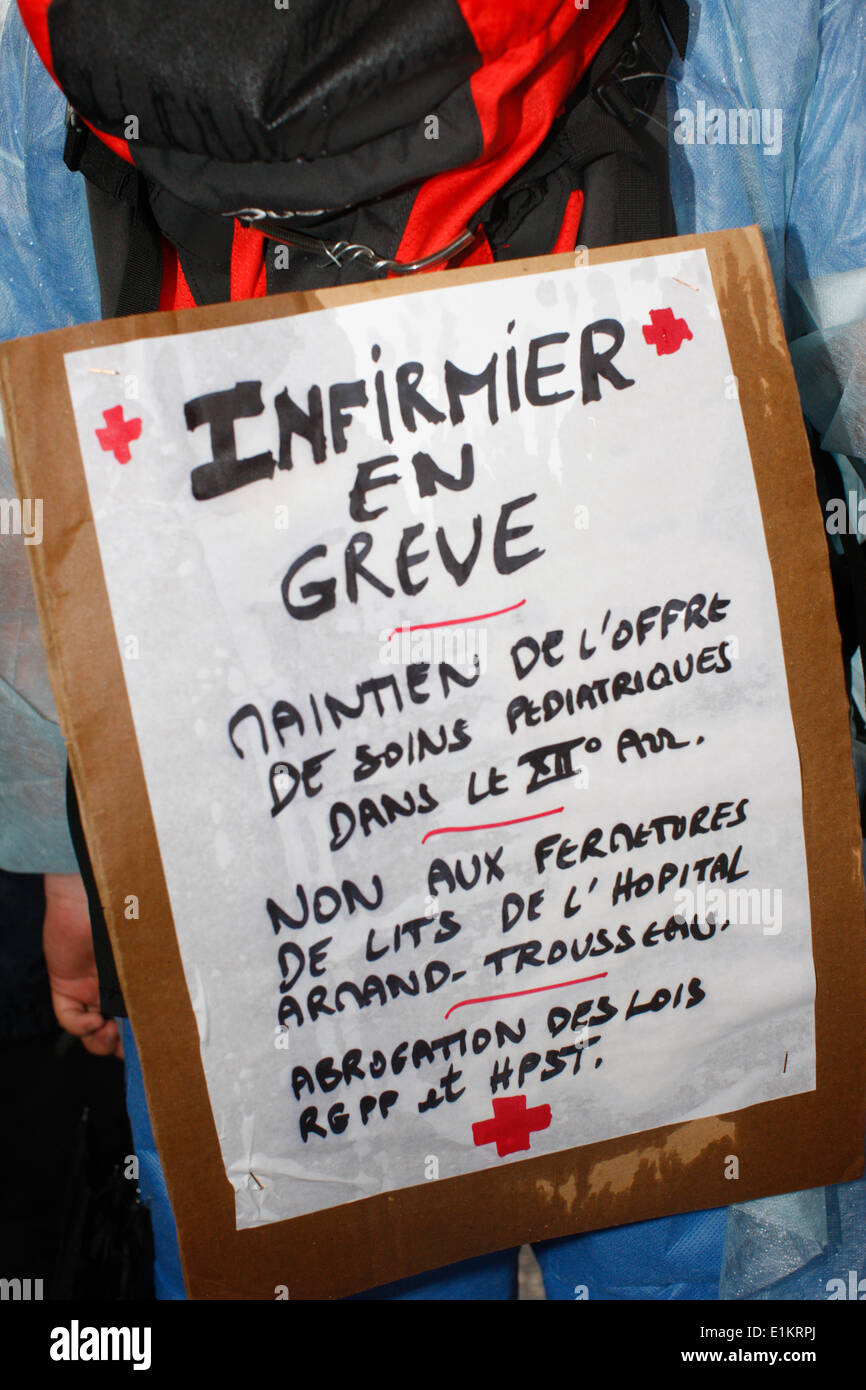 INFIRMIER
EN
GREVE
MAINTIEN DE L'OFFRE
DE SOINS PEDIATRIQUES
DANS LE XII° Arr.
NON AUX FERMETURES
DE LITS DE L'HOPITAL
ARMAND-TROUSSEAU.
ABROGATION DES LOIS
RGPP et HPST.
alamy
Image ID: E1KRPJ
www.alamy.com